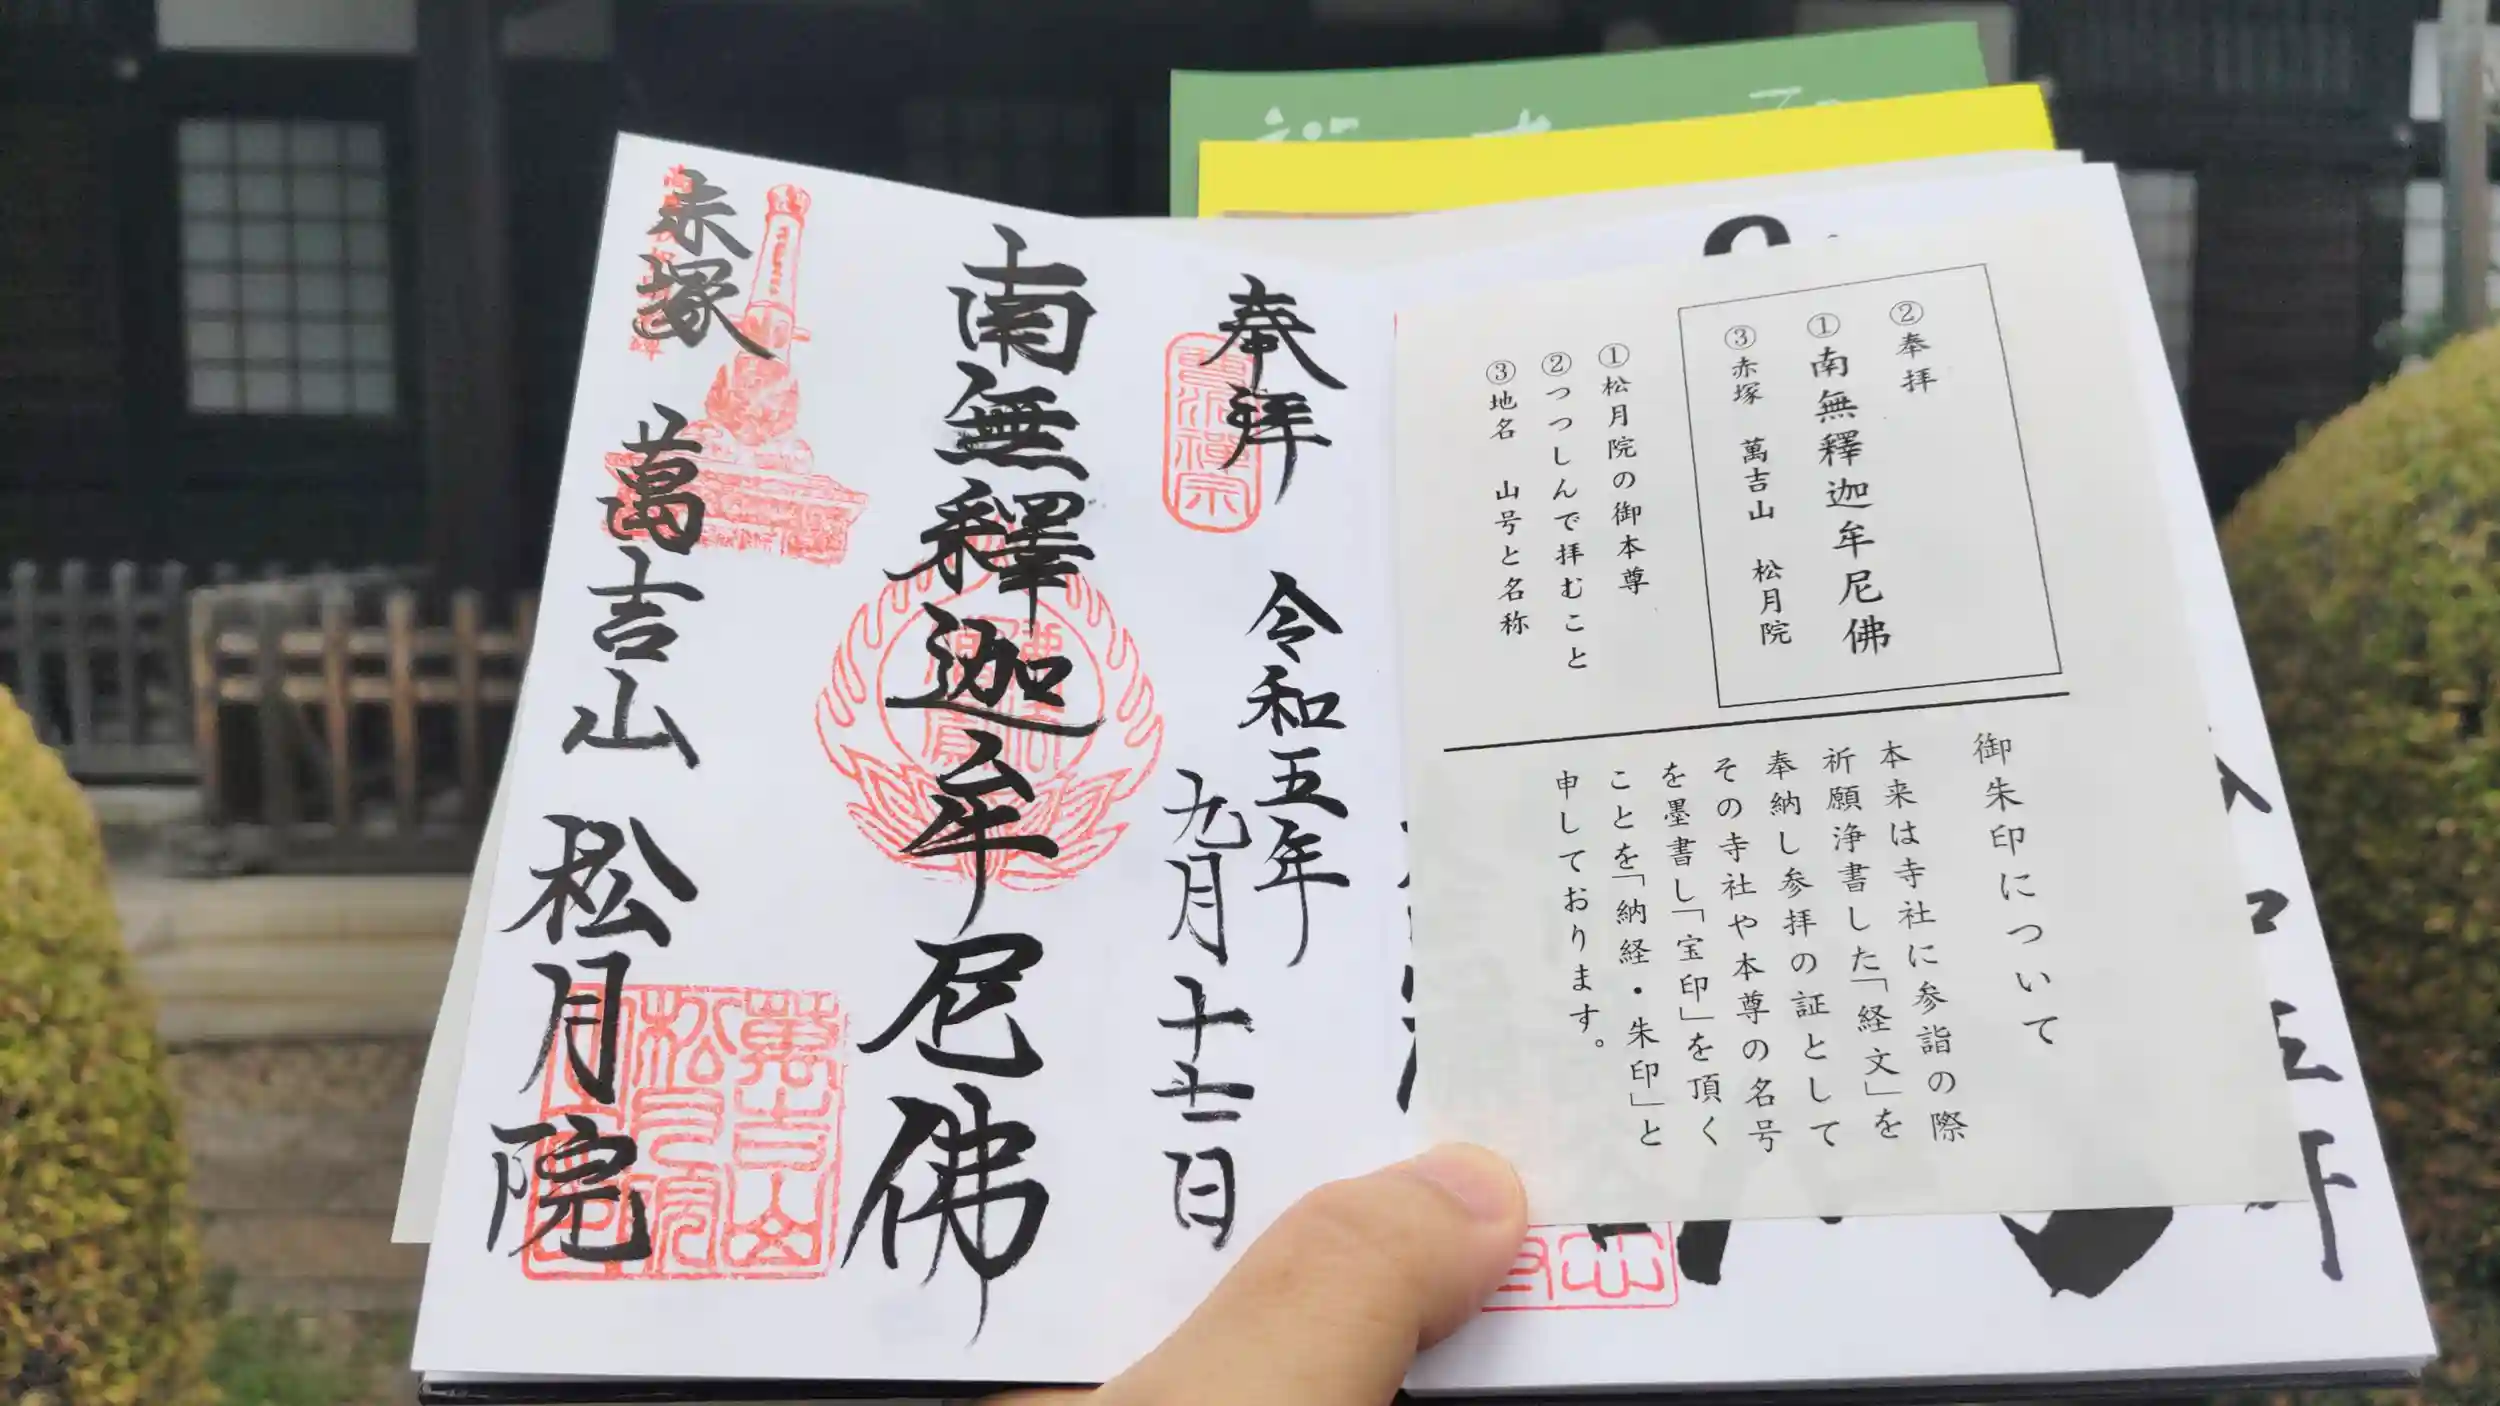 ②奉拝
①南無釋迦牟尼佛
③赤塚 萬吉山 松月院
①松月院の御本尊
②つつしんで拝むこと
③地名 山号と名称
御朱印について
本来は寺社に参詣の際
祈願浄書した「経文」を
奉納し参拝の証として
その寺社や本尊の名号
を墨書し「宝印」を頂く
ことを「納経・朱印」と
申しております。
奉拝 令和五年
九月十七日
曹洞禪宗
南無釋迦牟尼佛
赤塚 萬吉山 松月院
萬吉山
松月院